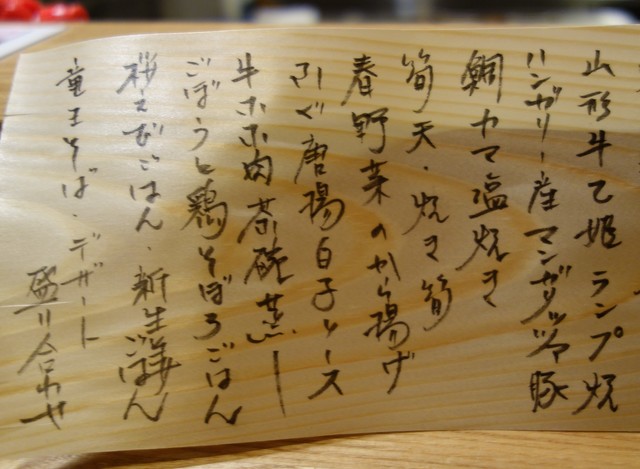 山形牛乙姫ランプ焼
ハンガリー産マンガリッツァ豚
鯛カマ塩焼き
筍天・焼き筍
春野菜のから揚げ
ふぐ唐揚白子ソース
牛ホホ肉茶碗蒸し
ごぼうと鶏そぼろごはん
桜えびごはん・新生姜ごはん
竜王そば・デザート
盛り合わせ